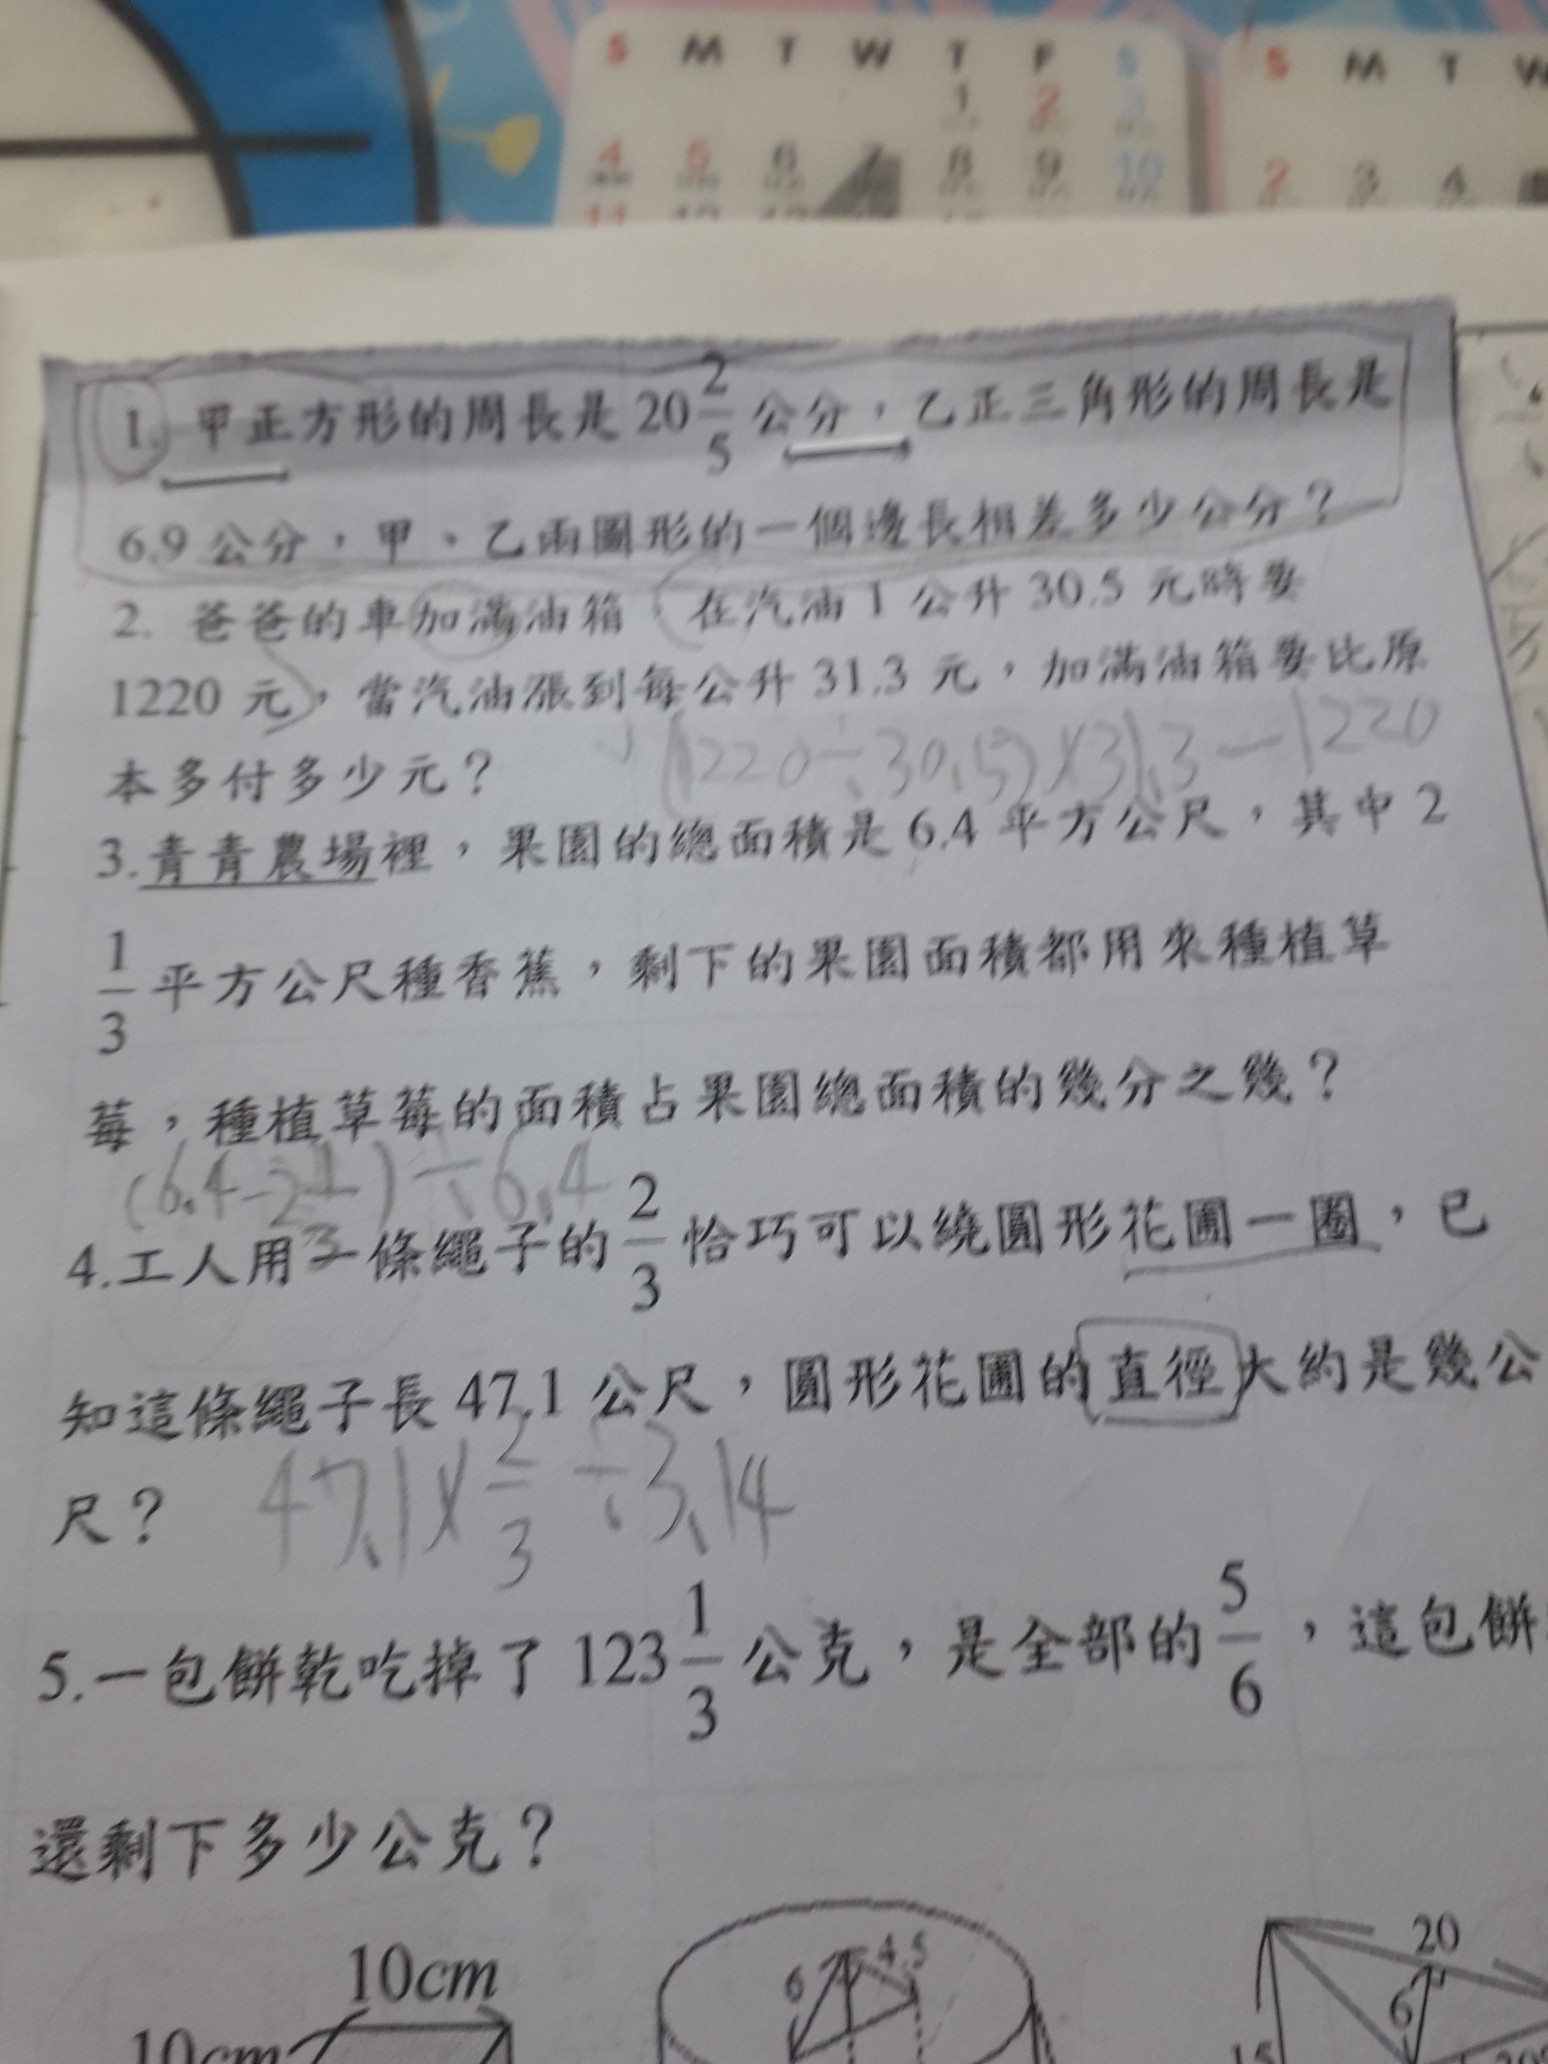 S M T W T F S
1 2 3
4 5 6 7 8 9 10
S M T W
2 3 4
1. 甲正方形的周長是 20 2/5 公分，乙正三角形的周長是
6.9 公分，甲、乙兩圖形的一個邊長相差多少公分？
2. 爸爸的車加滿油箱（在汽油 1 公升 30.5 元時要
1220 元），當汽油漲到每公升 31.3 元，加滿油箱要比原
本多付多少元？ (1220÷30.5)×31.3－1220
3.青青農場裡，果園的總面積是 6.4 平方公尺，其中 2
1/3 平方公尺種香蕉，剩下的果園面積都用來種植草
莓，種植草莓的面積占果園總面積的幾分之幾？
(6.4－2 1/3)÷6.4
4.工人用一條繩子的 2/3 恰巧可以繞圓形花圃一圈，已
知這條繩子長 47.1 公尺，圓形花圃的直徑大約是幾公
尺？ 47.1×2/3÷3.14
5.一包餅乾吃掉了 123 1/3 公克，是全部的 5/6，這包餅
還剩下多少公克？
10cm
10cm
6 4.5
20
6
15